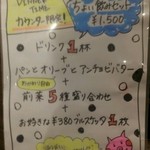 DINNER TIME
カウンター限定!
ちょい飲みセット
¥1,500
ドリンク1杯
+
パンとオリーブとアンチョビバター
+
前菜5種盛り合わせ
+
お好きな¥380ブルスケッタ1個